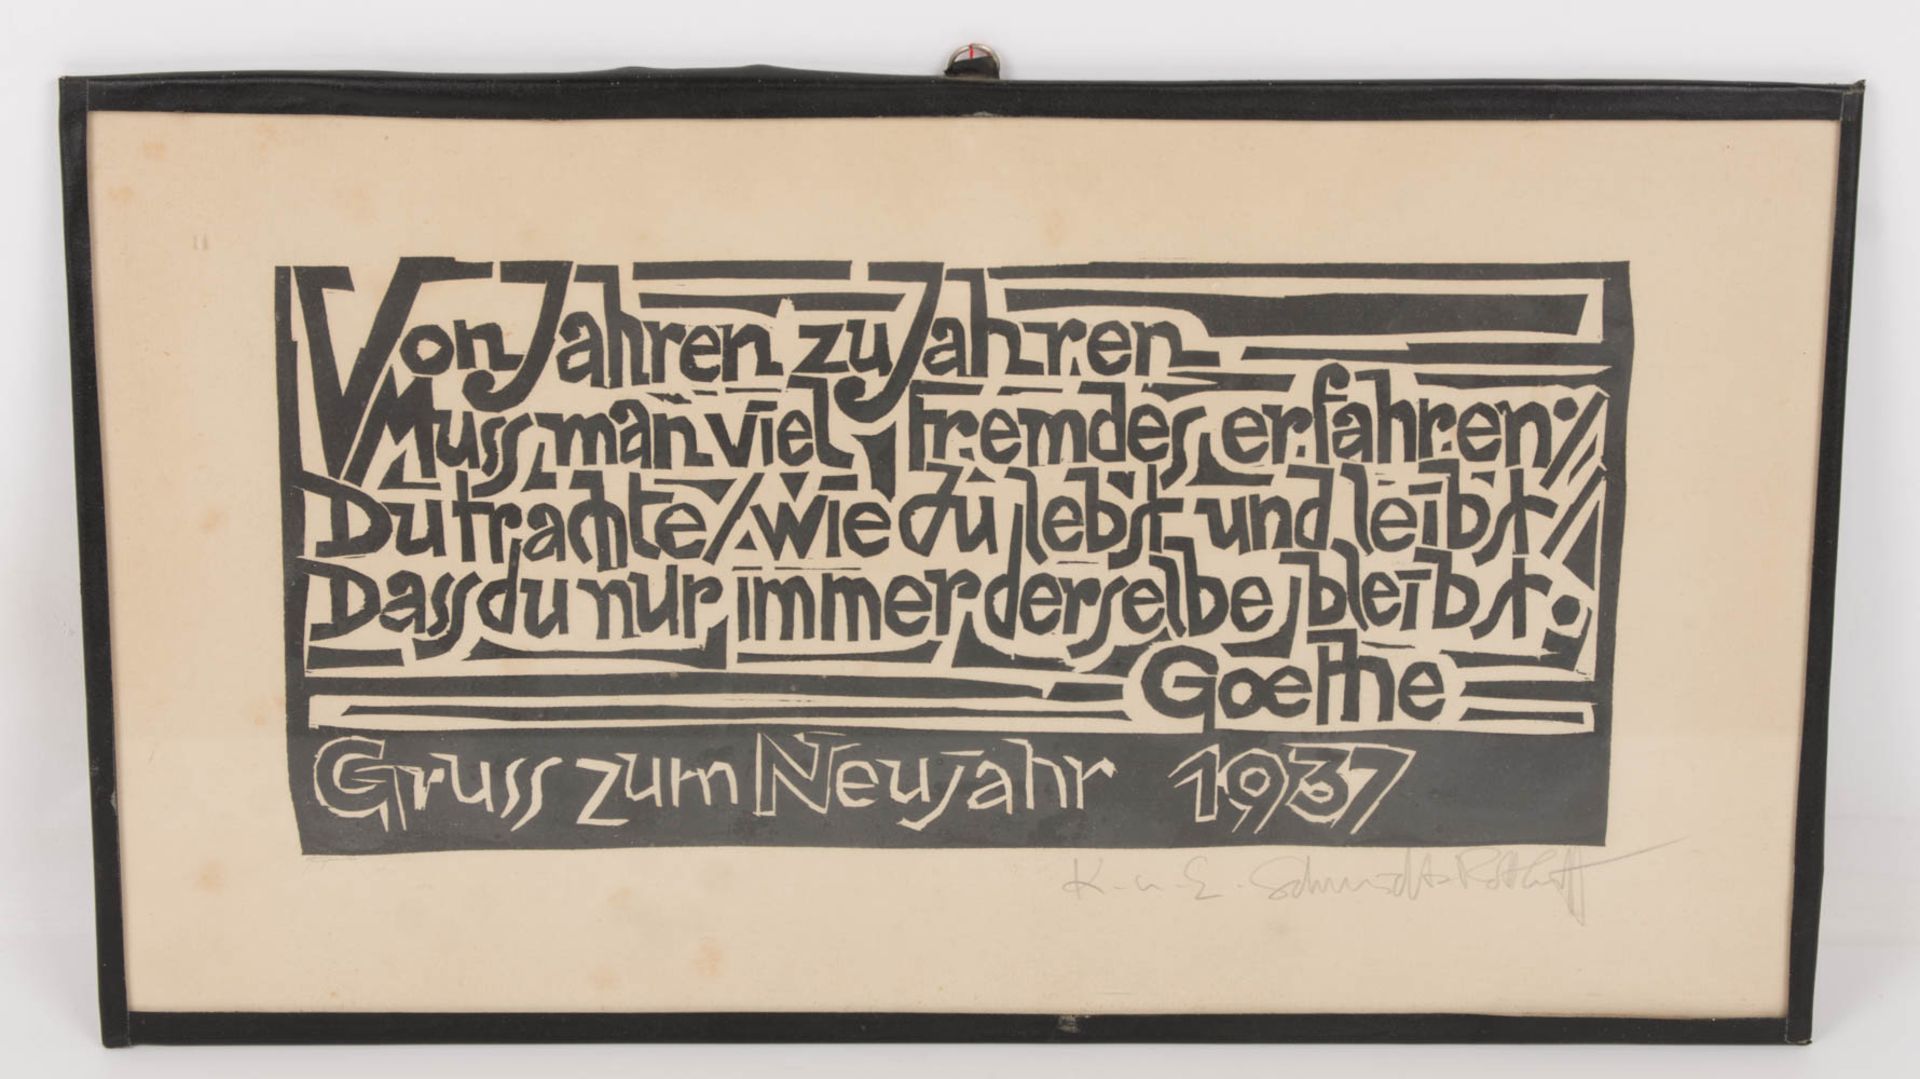 Von Jahren zu Jahren
Muss man viel fremdes erfahren;
Du trachte / wie du lebst und leibst /
Dass du nur immer derselbe bleibst.
Goethe
Gruss zum Neujahr 1937
K. u. E. Schmidt-Rottluff